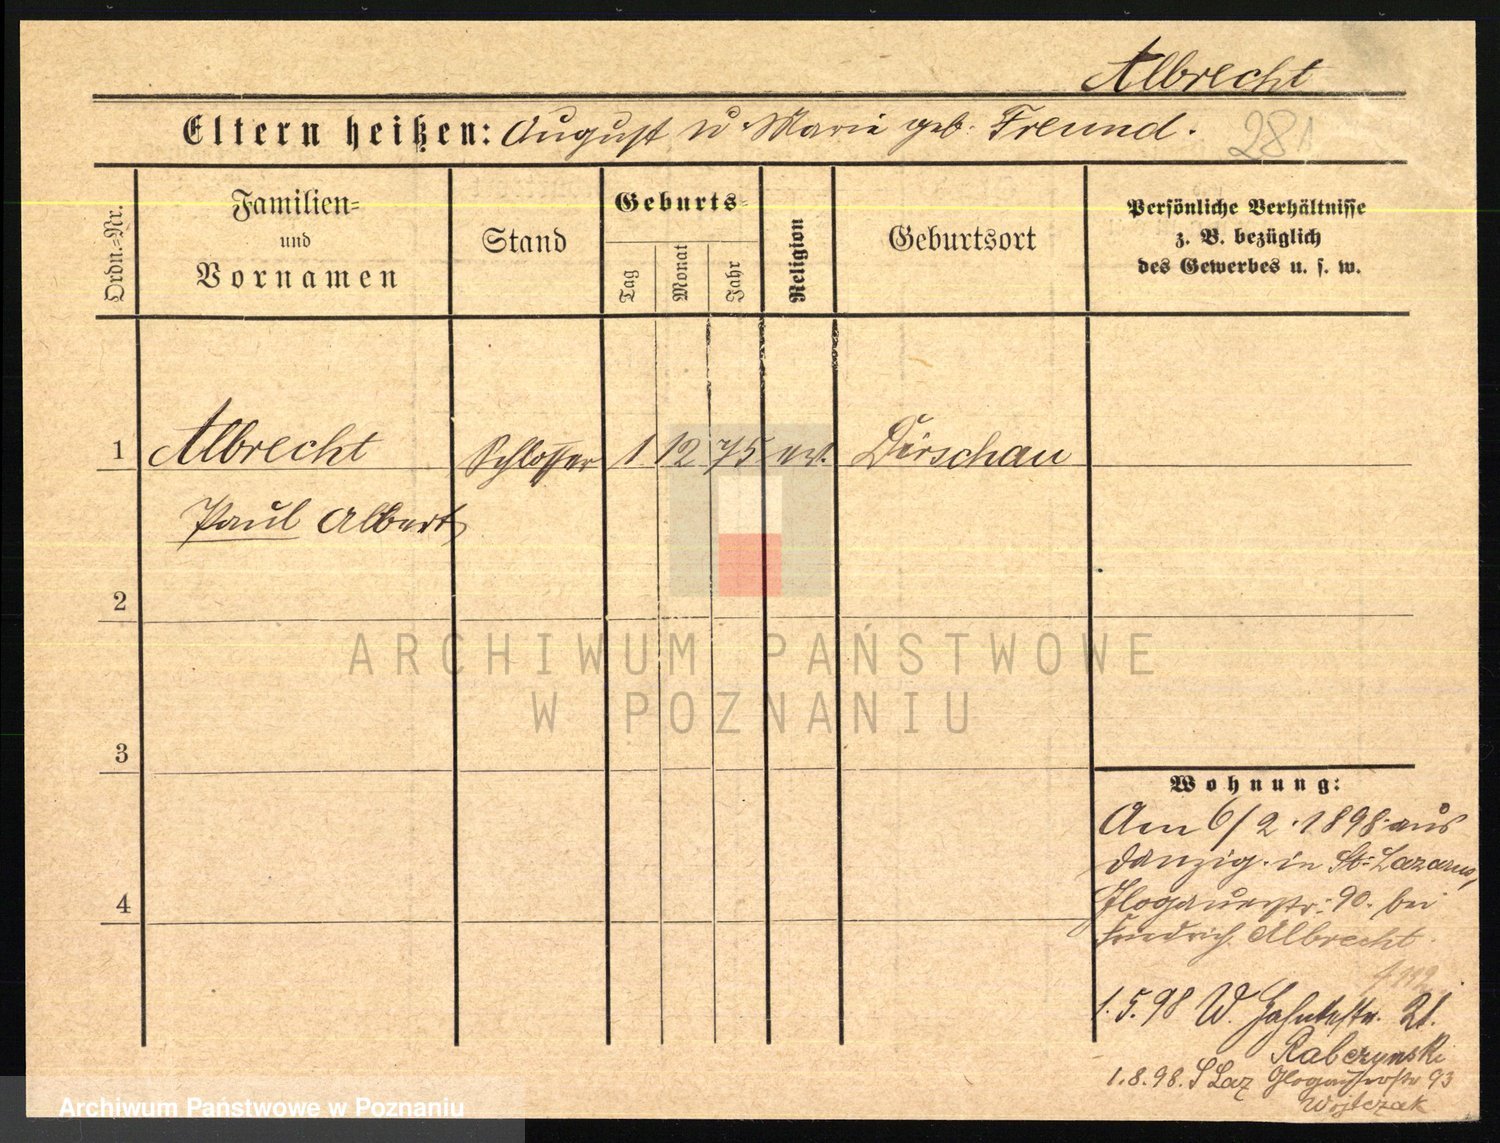 Albrecht
Eltern heißen: August u Marie geb. Freund.
28
Ordn.=Nr.
Familien=
und
Vornamen
Stand
Geburts=
Tag
Monat
Jahr
Religion
Geburtsort
Persönliche Verhältnisse
z. B. bezüglich
des Gewerbes u. s. w.
1 Albrecht Schlosser 1 12 75 ev. Dirschau
Paul Albert
2
3
4
ARCHIWUM PAŃSTWOWE
W POZNANIU
Wohnung:
Am 6/2.1898. aus
Danzig. in St. Lazarus,
Glogauerstr. 90. bei
Friedrich Albrecht.
1.5.98 W. 21.
Rabczynski
1.8.98. S Laz Glogauerstr 93
Wojtczak
Archiwum Państwowe w Poznaniu